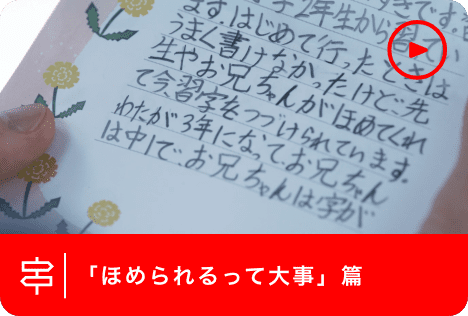 学2年生から習てい
ます。はじめて行ったときは
うまく書けなかったけど、先
生やお兄ちゃんがほめてくれ
て今習字をつづけられています。
わたしが3年になってお兄ちゃん
は中1で、お兄ちゃんは字が
「ほめられるって大事」篇